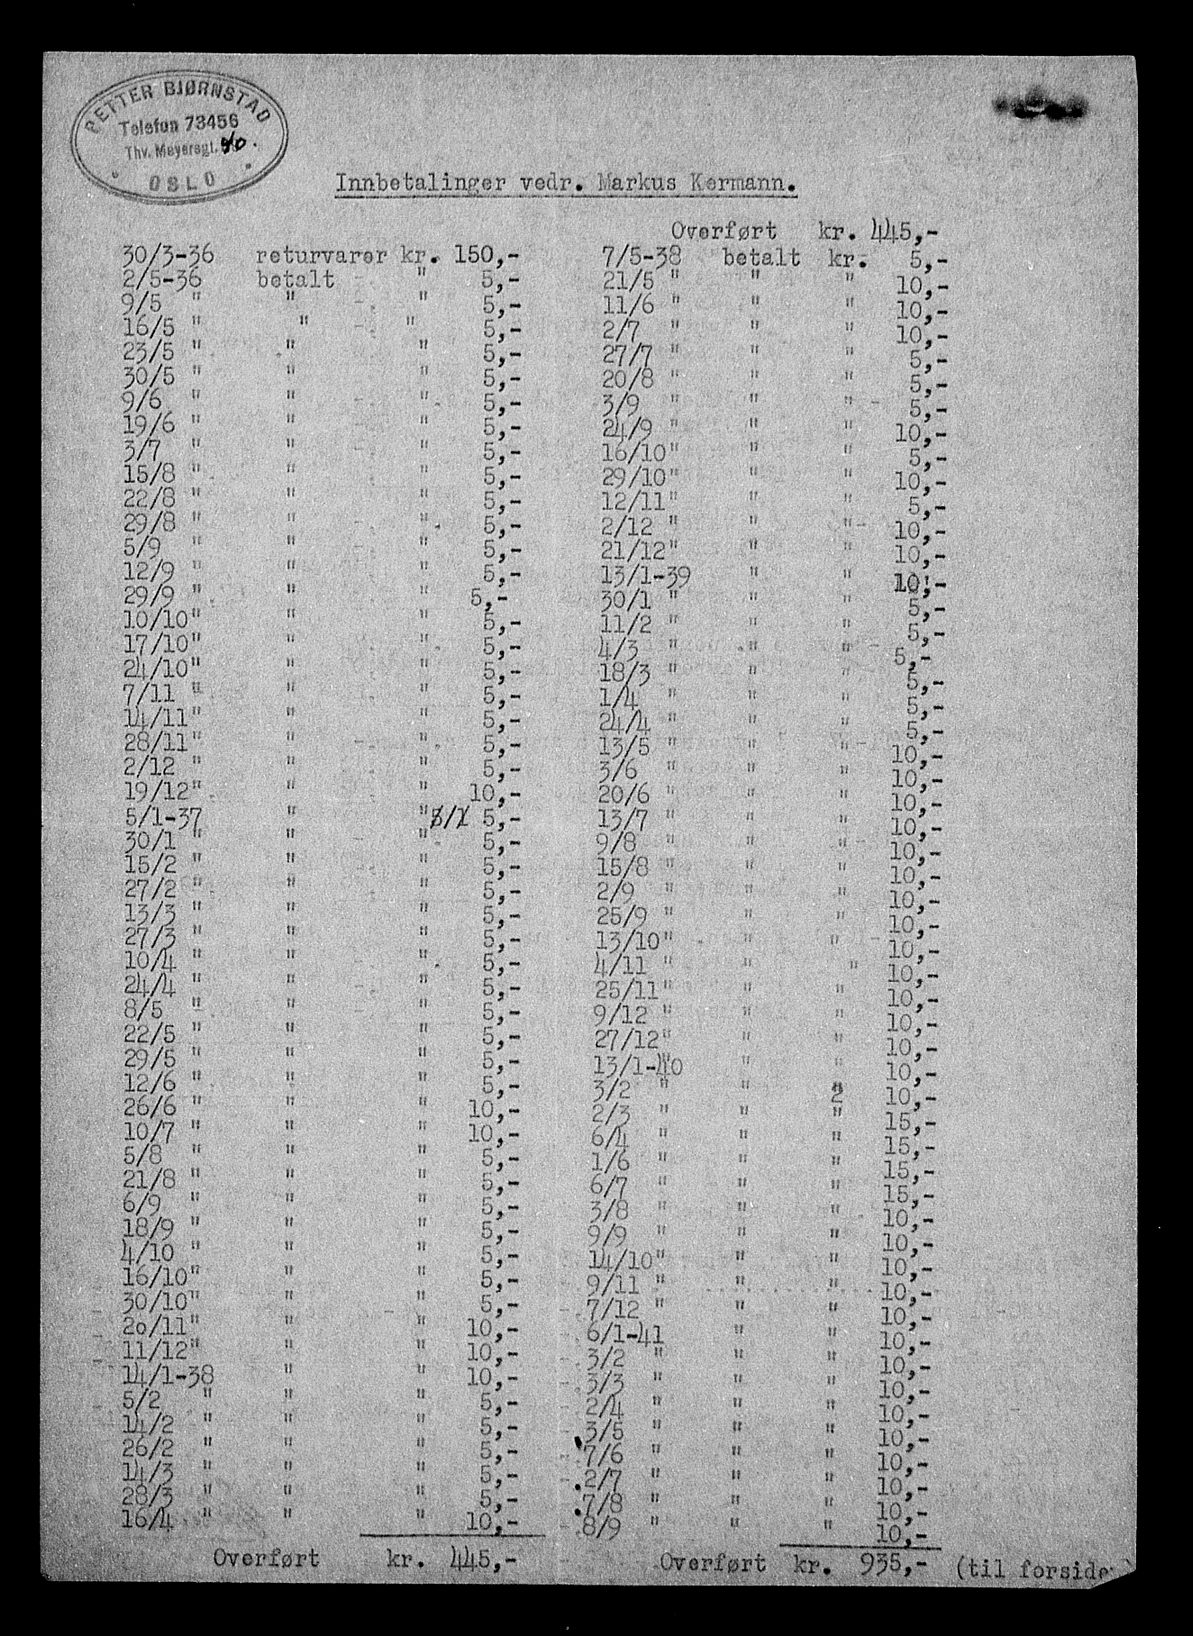 PETTER BJØRNSTAD
Telefon 73456
Thv. Meyersgt. 40.
OSLO
Innbetalinger vedr. Markus Kermann.
30/3-36 returvarer kr. 150,-
2/5-36 betalt " 5,-
9/5 " " " 5,-
16/5 " " " 5,-
23/5 " " " 5,-
30/5 " " " 5,-
9/6 " " " 5,-
19/6 " " " 5,-
3/7 " " " 5,-
15/8 " " " 5,-
22/8 " " " 5,-
29/8 " " " 5,-
5/9 " " " 5,-
12/9 " " " 5,-
29/9 " " " 5,-
10/10" " " 5,-
17/10" " " 5,-
24/10" " " 5,-
7/11 " " " 5,-
14/11" " " 5,-
28/11" " " 5,-
2/12 " " " 5,-
19/12" " " 10,-
5/1-37 " " 5,-
30/1 " " " 5,-
15/2 " " " 5,-
27/2 " " " 5,-
13/3 " " " 5,-
27/3 " " " 5,-
10/4 " " " 5,-
24/4 " " " 5,-
8/5 " " " 5,-
22/5 " " " 5,-
29/5 " " " 5,-
12/6 " " " 5,-
26/6 " " " 10,-
10/7 " " " 10,-
5/8 " " " 5,-
21/8 " " " 5,-
6/9 " " " 5,-
18/9 " " " 5,-
4/10 " " " 5,-
16/10" " " 5,-
30/10" " " 5,-
2o/11" " " 10,-
11/12" " " 10,-
14/1-38 " " 10,-
5/2 " " " 5,-
14/2 " " " 5,-
26/2 " " " 5,-
14/3 " " " 5,-
28/3 " " " 5,-
16/4 " " " 10,-
Overført kr. 445,-
Overført kr. 445,-
7/5-38 betalt kr. 5,-
21/5 " " " 10,-
11/6 " " " 10,-
2/7 " " " 10,-
27/7 " " " 5,-
20/8 " " " 5,-
3/9 " " " 5,-
24/9 " " " 10,-
16/10" " " 5,-
29/10" " " 10,-
12/11" " " 5,-
2/12 " " " 10,-
21/12" " " 10,-
13/1-39 " " 10,-
30/1 " " " 5,-
11/2 " " " 5,-
4/3 " " " 5,-
18/3 " " " 5,-
1/4 " " " 5,-
24/4 " " " 5,-
13/5 " " " 10,-
3/6 " " " 10,-
20/6 " " " 10,-
13/7 " " " 10,-
9/8 " " " 10,-
15/8 " " " 10,-
2/9 " " " 10,-
25/9 " " " 10,-
13/10" " " 10,-
4/11 " " " 10,-
25/11" " " 10,-
9/12 " " " 10,-
27/12" " " 10,-
13/1-40 " " 10,-
3/2 " " " 10,-
2/3 " " " 15,-
6/4 " " " 15,-
1/6 " " " 15,-
6/7 " " " 15,-
3/8 " " " 10,-
9/9 " " " 10,-
14/10" " " 10,-
9/11 " " " 10,-
7/12 " " " 10,-
6/1-41 " " 10,-
3/2 " " " 10,-
3/3 " " " 10,-
2/4 " " " 10,-
3/5 " " " 10,-
7/6 " " " 10,-
2/7 " " " 10,-
7/8 " " " 10,-
8/9 " " " 10,-
Overført kr. 935,- (til forside)